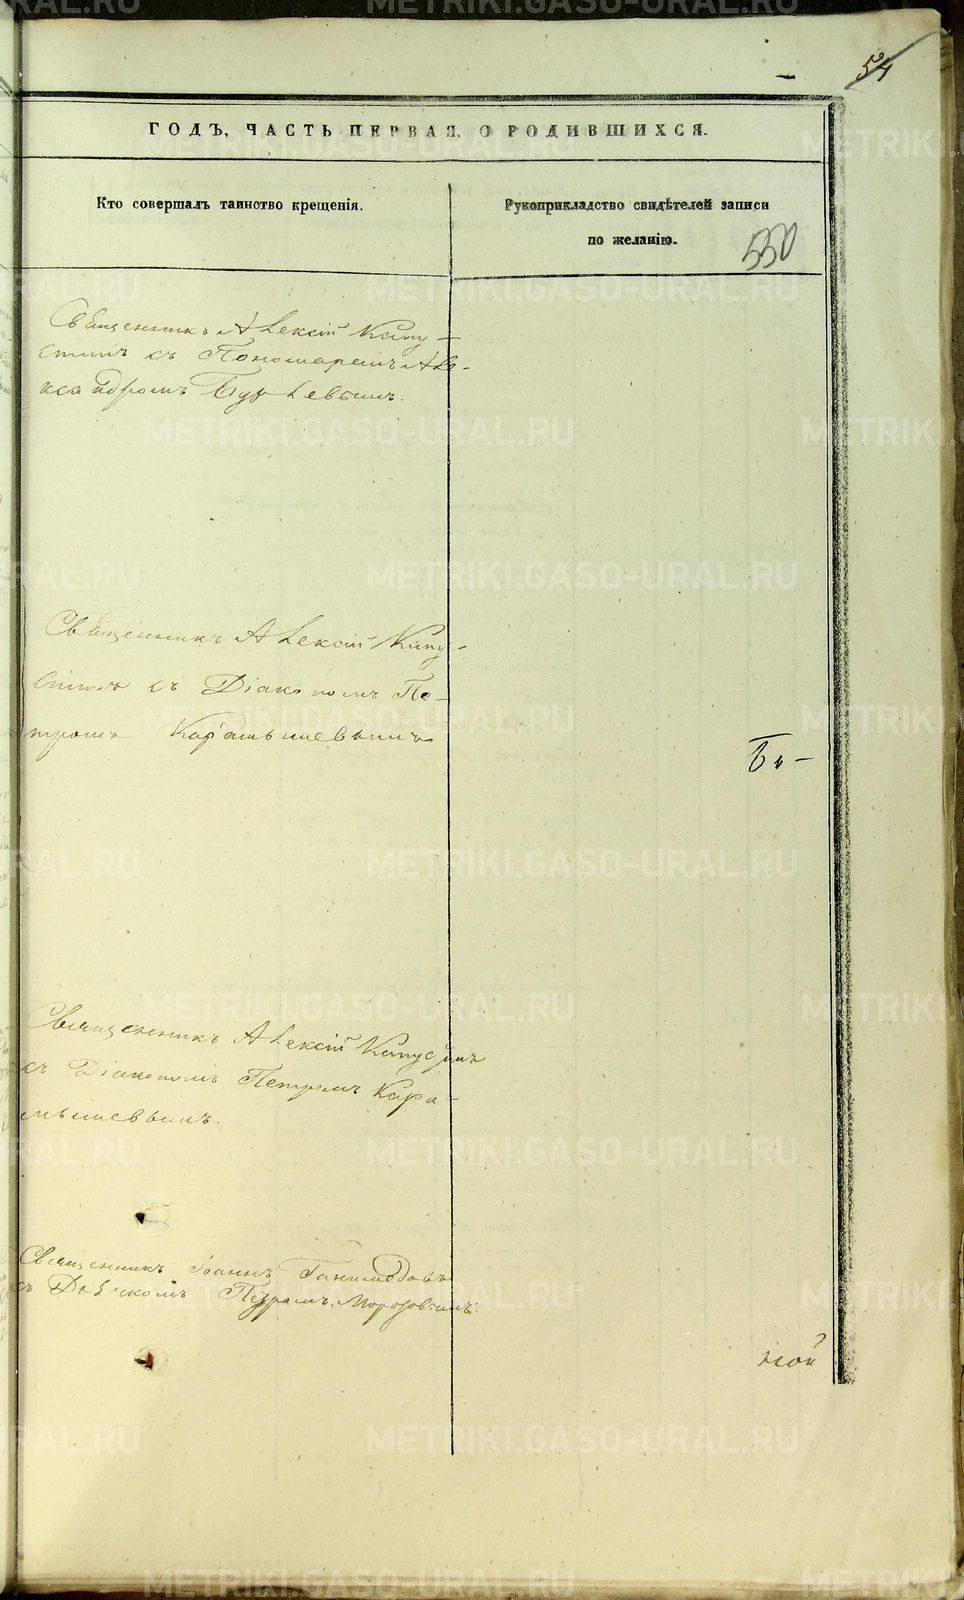 54
ГОДЪ, ЧАСТЬ ПЕРВАЯ, О РОДИВШИХСЯ.
Кто совершалъ таинство крещенія.
Рукоприкладство свидѣтелей записи
по желанію.
530
Священникъ Алексій Капу-
стинъ съ Пономаремъ Але-
ксандромъ
Священникъ Алексій Капу-
стинъ съ Діакономъ Пе-
тромъ Карамышевымъ
Бъ-
Священникъ Алексій Капустинъ
съ Діакономъ Петромъ Кара-
мышевымъ.
Священникъ Іоаннъ Ганимедовъ
съ Дьячкомъ Петромъ Морозовымъ.
ной
METRIKI.GASO-URAL.RU